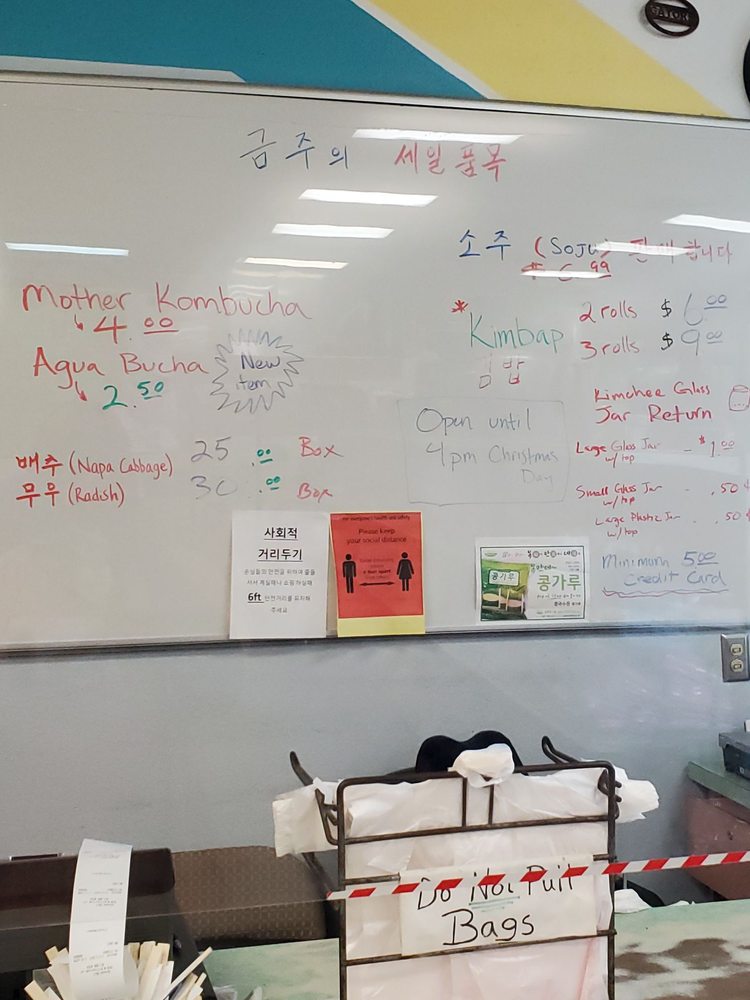 GATOR
금주의 세일품목
소주 (Soju) 판매합니다
$ 6.99
Mother Kombucha
4.00
Agua Bucha
2.50
New
item
* Kimbap
김밥
2 rolls $ 6.00
3 rolls $ 9.00
배추 (Napa Cabbage) 25.00 Box
무우 (Radish) 30.00 Box
Open until
4pm Christmas
Day
Kimchee Glass
Jar Return
Large Glass Jar - $1.00
w/top
Small Glass Jar - .50¢
w/top
Large Plastic Jar - .50¢
w/top
Minimum 5.00
Credit Card
사회적
거리두기
6ft 안전거리를 유지해
주세요
Please keep
your social distance
콩가루
콩가루
Do Not Pull
Bags